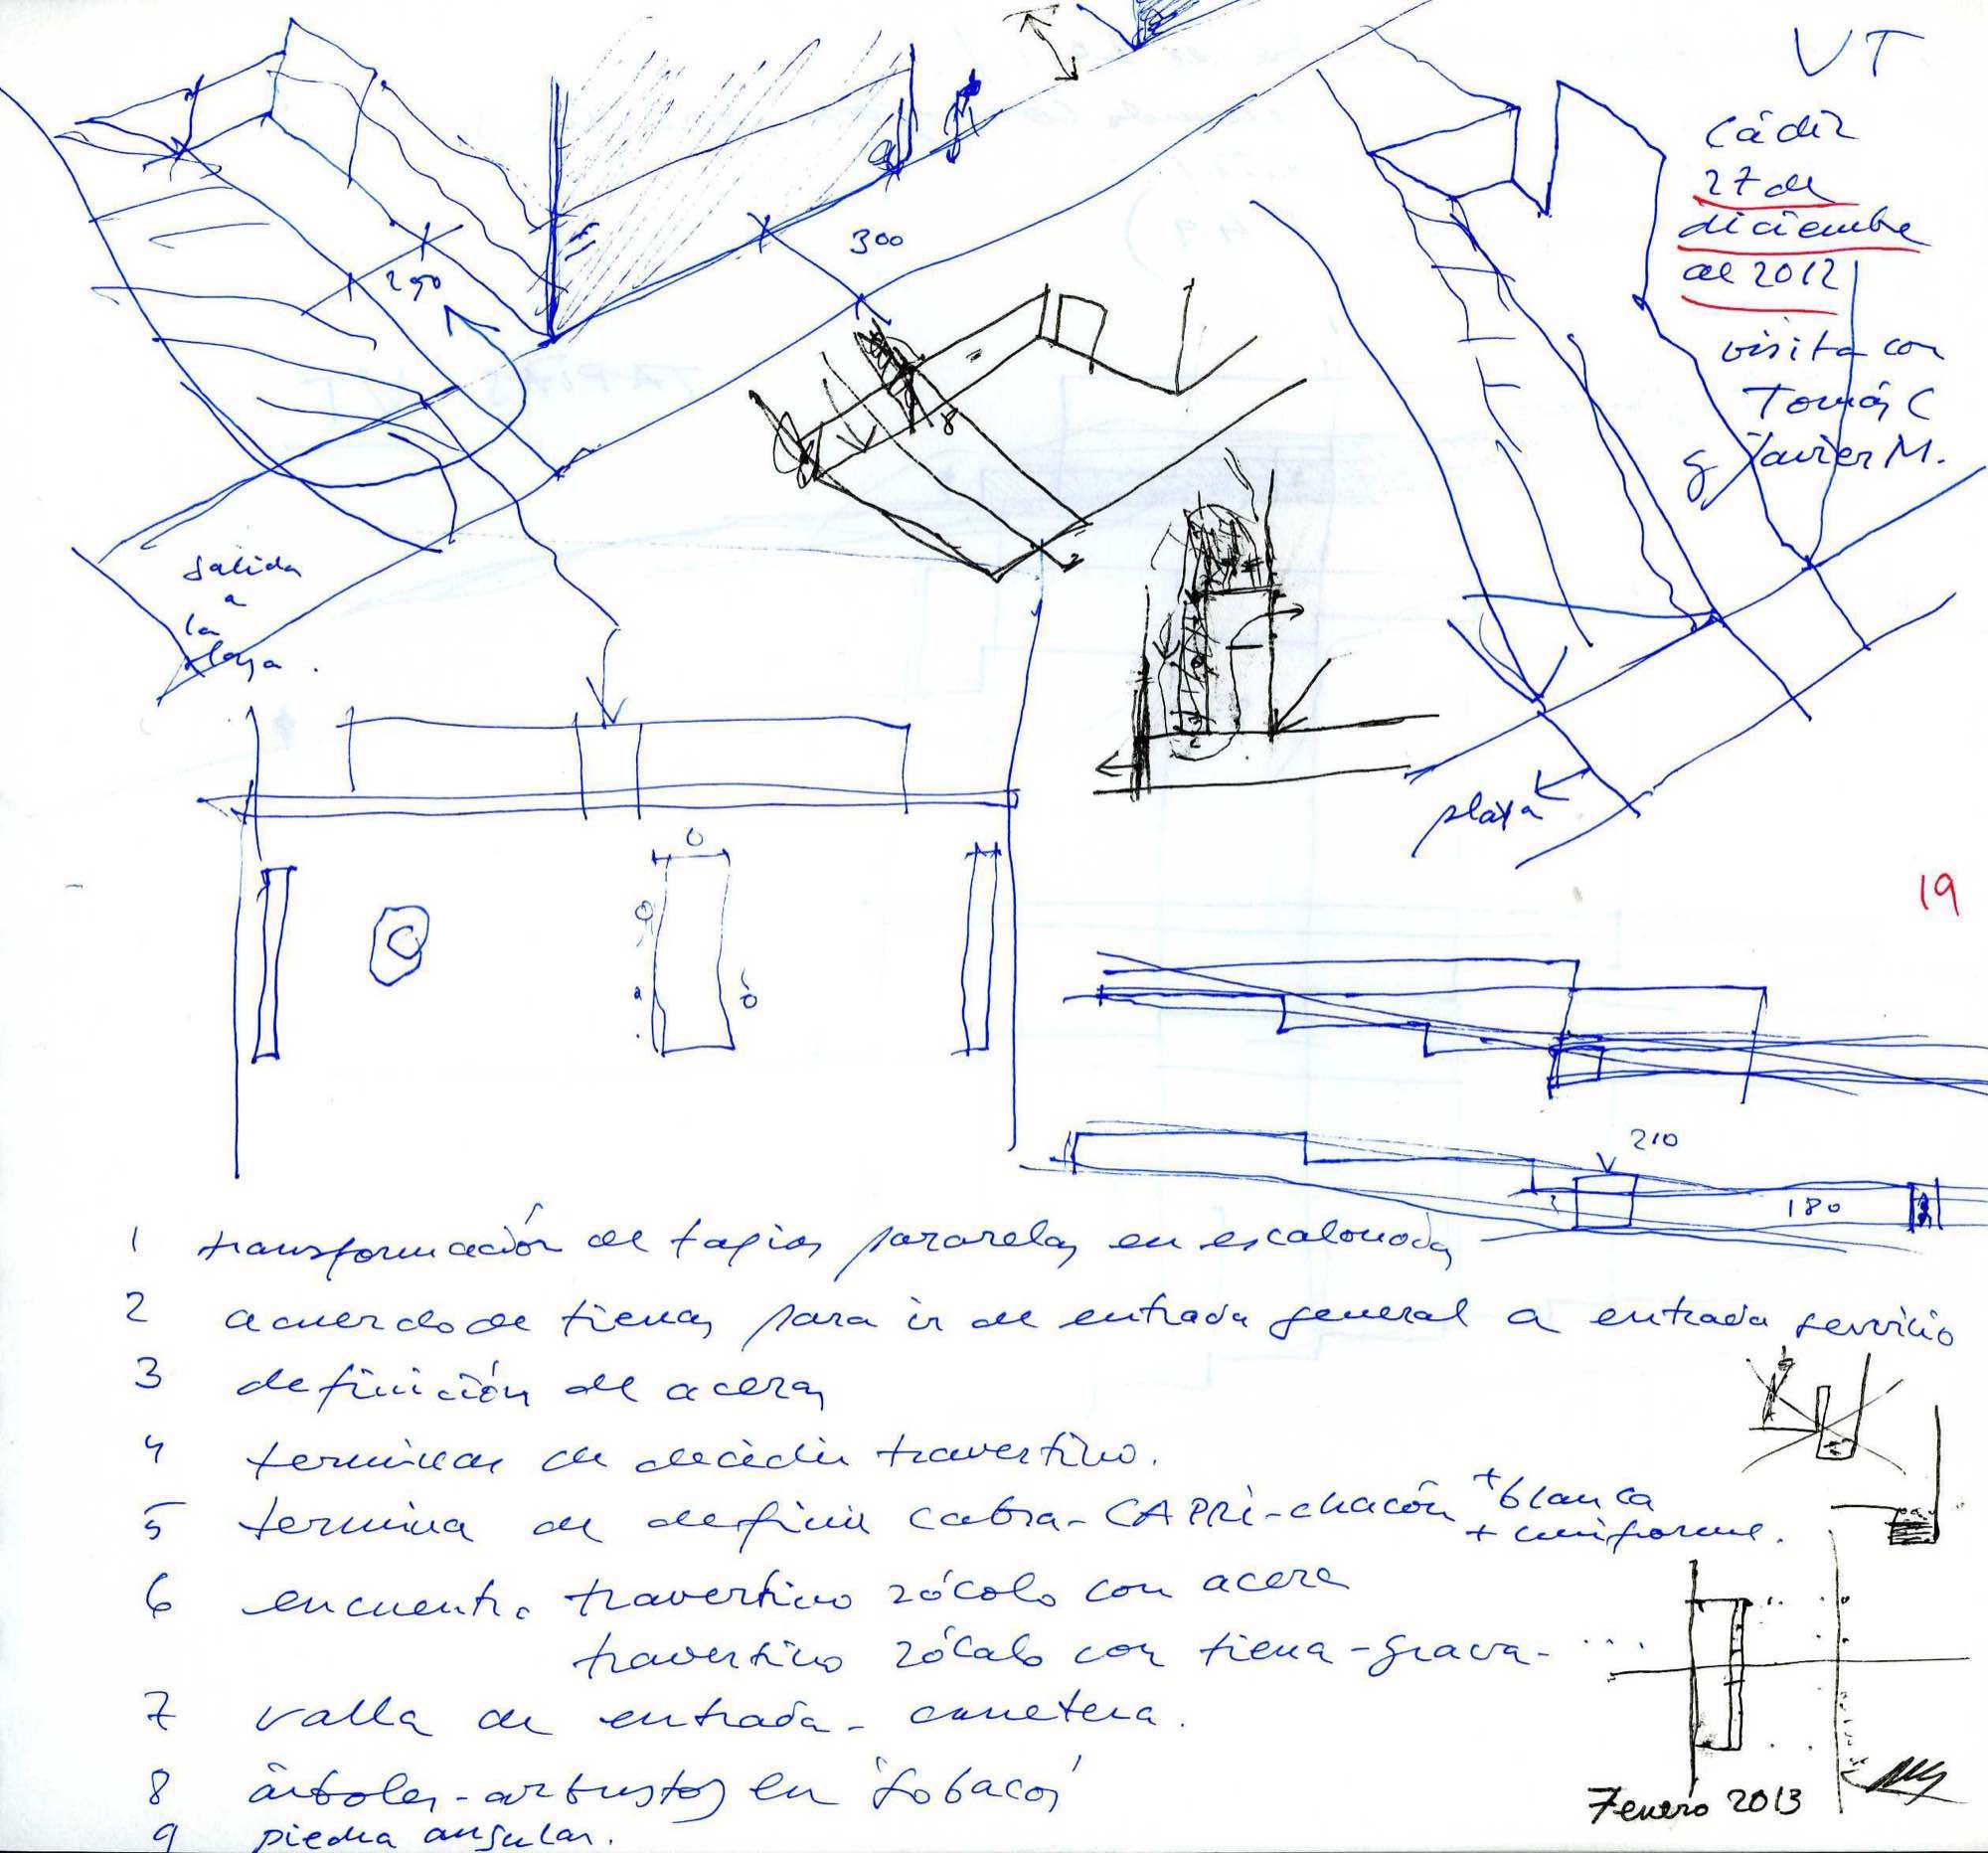 VT
Cádiz
27 de
diciembre
de 2012
visita con
Tomás C
y Javier M.
300
290
8
salida
a
la
playa.
playa
19
210
180
1 transformación de tapias pararelas en escalonadas
2 acuerdo de tierras para ir de entrada general a entrada servicio
3 definición de aceras
4 terminar de decidir travertino.
5 termina de definir cabra-CAPRI-chacón + blanca
+ uniforme.
6 encuentro travertino zócolo con acera
travertino zócalo con tierra-grava- ...
7 valla de entrada - carretera.
8 árboles-arbustos en
9 piedra angular.
7 enero 2013